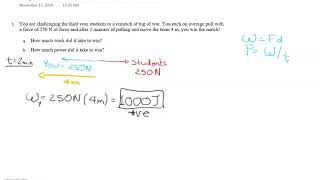 November 13, 2019 12:05 PM
1. You are challenging the third year students to a rematch of tug of war. You each on average pull with
a force of 250 N of force and after 2 minutes of pulling and move the team 4 m, you win the match!
a. How much work did it take to win?
b. How much power did it take to win?
W = Fd
P = W/t
t = 2 min
You - 250N
Students
250N
4m
W = 250N (4m) = 1000J
+ve